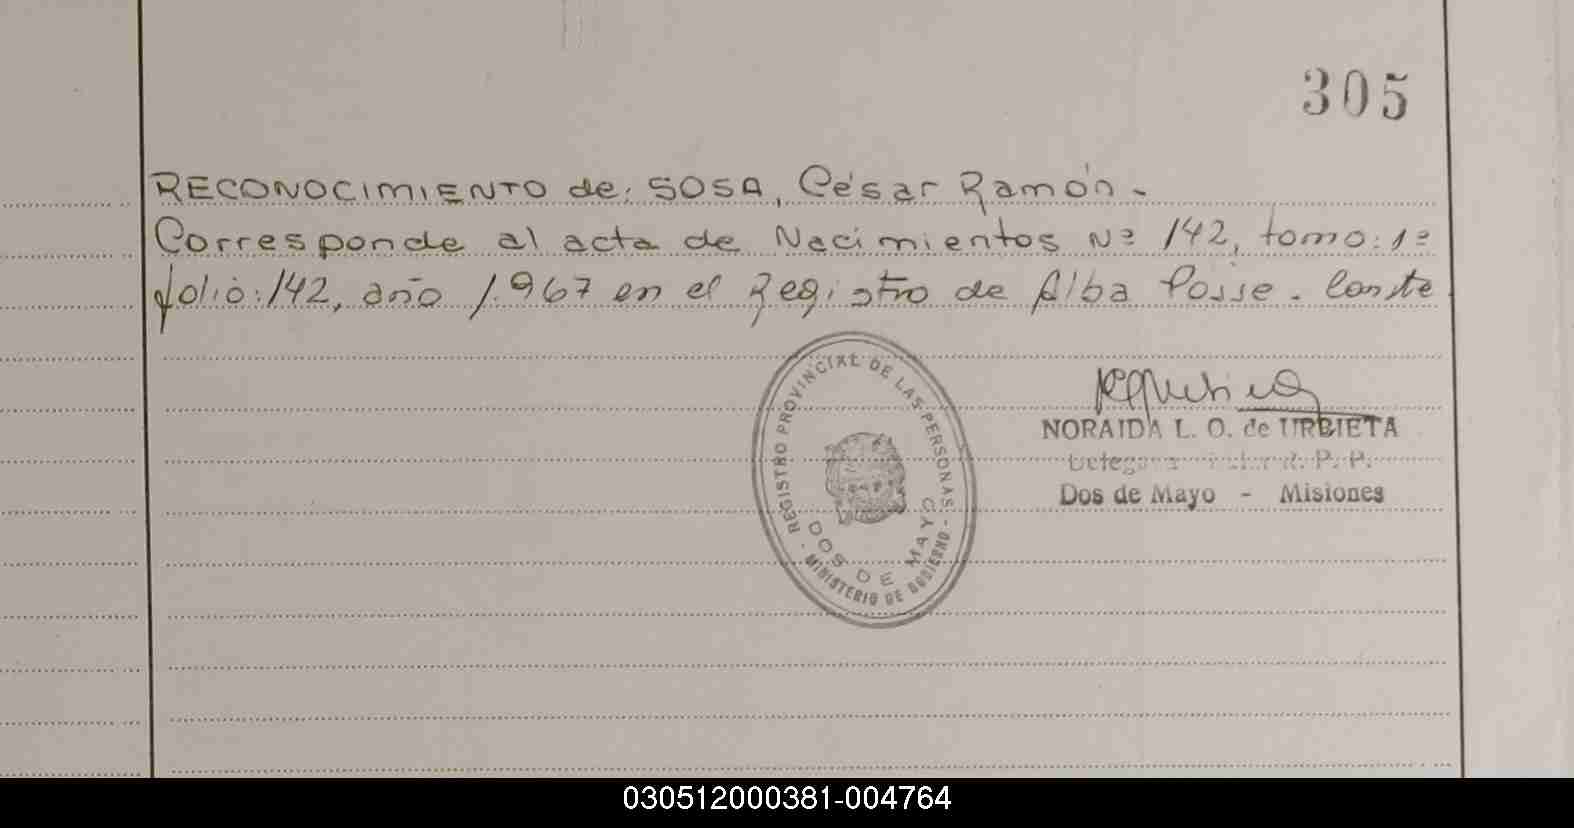 305
RECONOCIMIENTO de: SOSA, César Ramón -
Corresponde al acta de Nacimientos Nº 142, tomo: 1º
folio: 142, año 1.967 en el Registro de Alba Posse. Conste
REGISTRO PROVINCIAL DE LAS PERSONAS - MINISTERIO DE GOBIERNO -
DOS DE MAYO
NORAIDA L. O. de URBIETA
R. P. P.
Dos de Mayo - Misiones
030512000381-004764